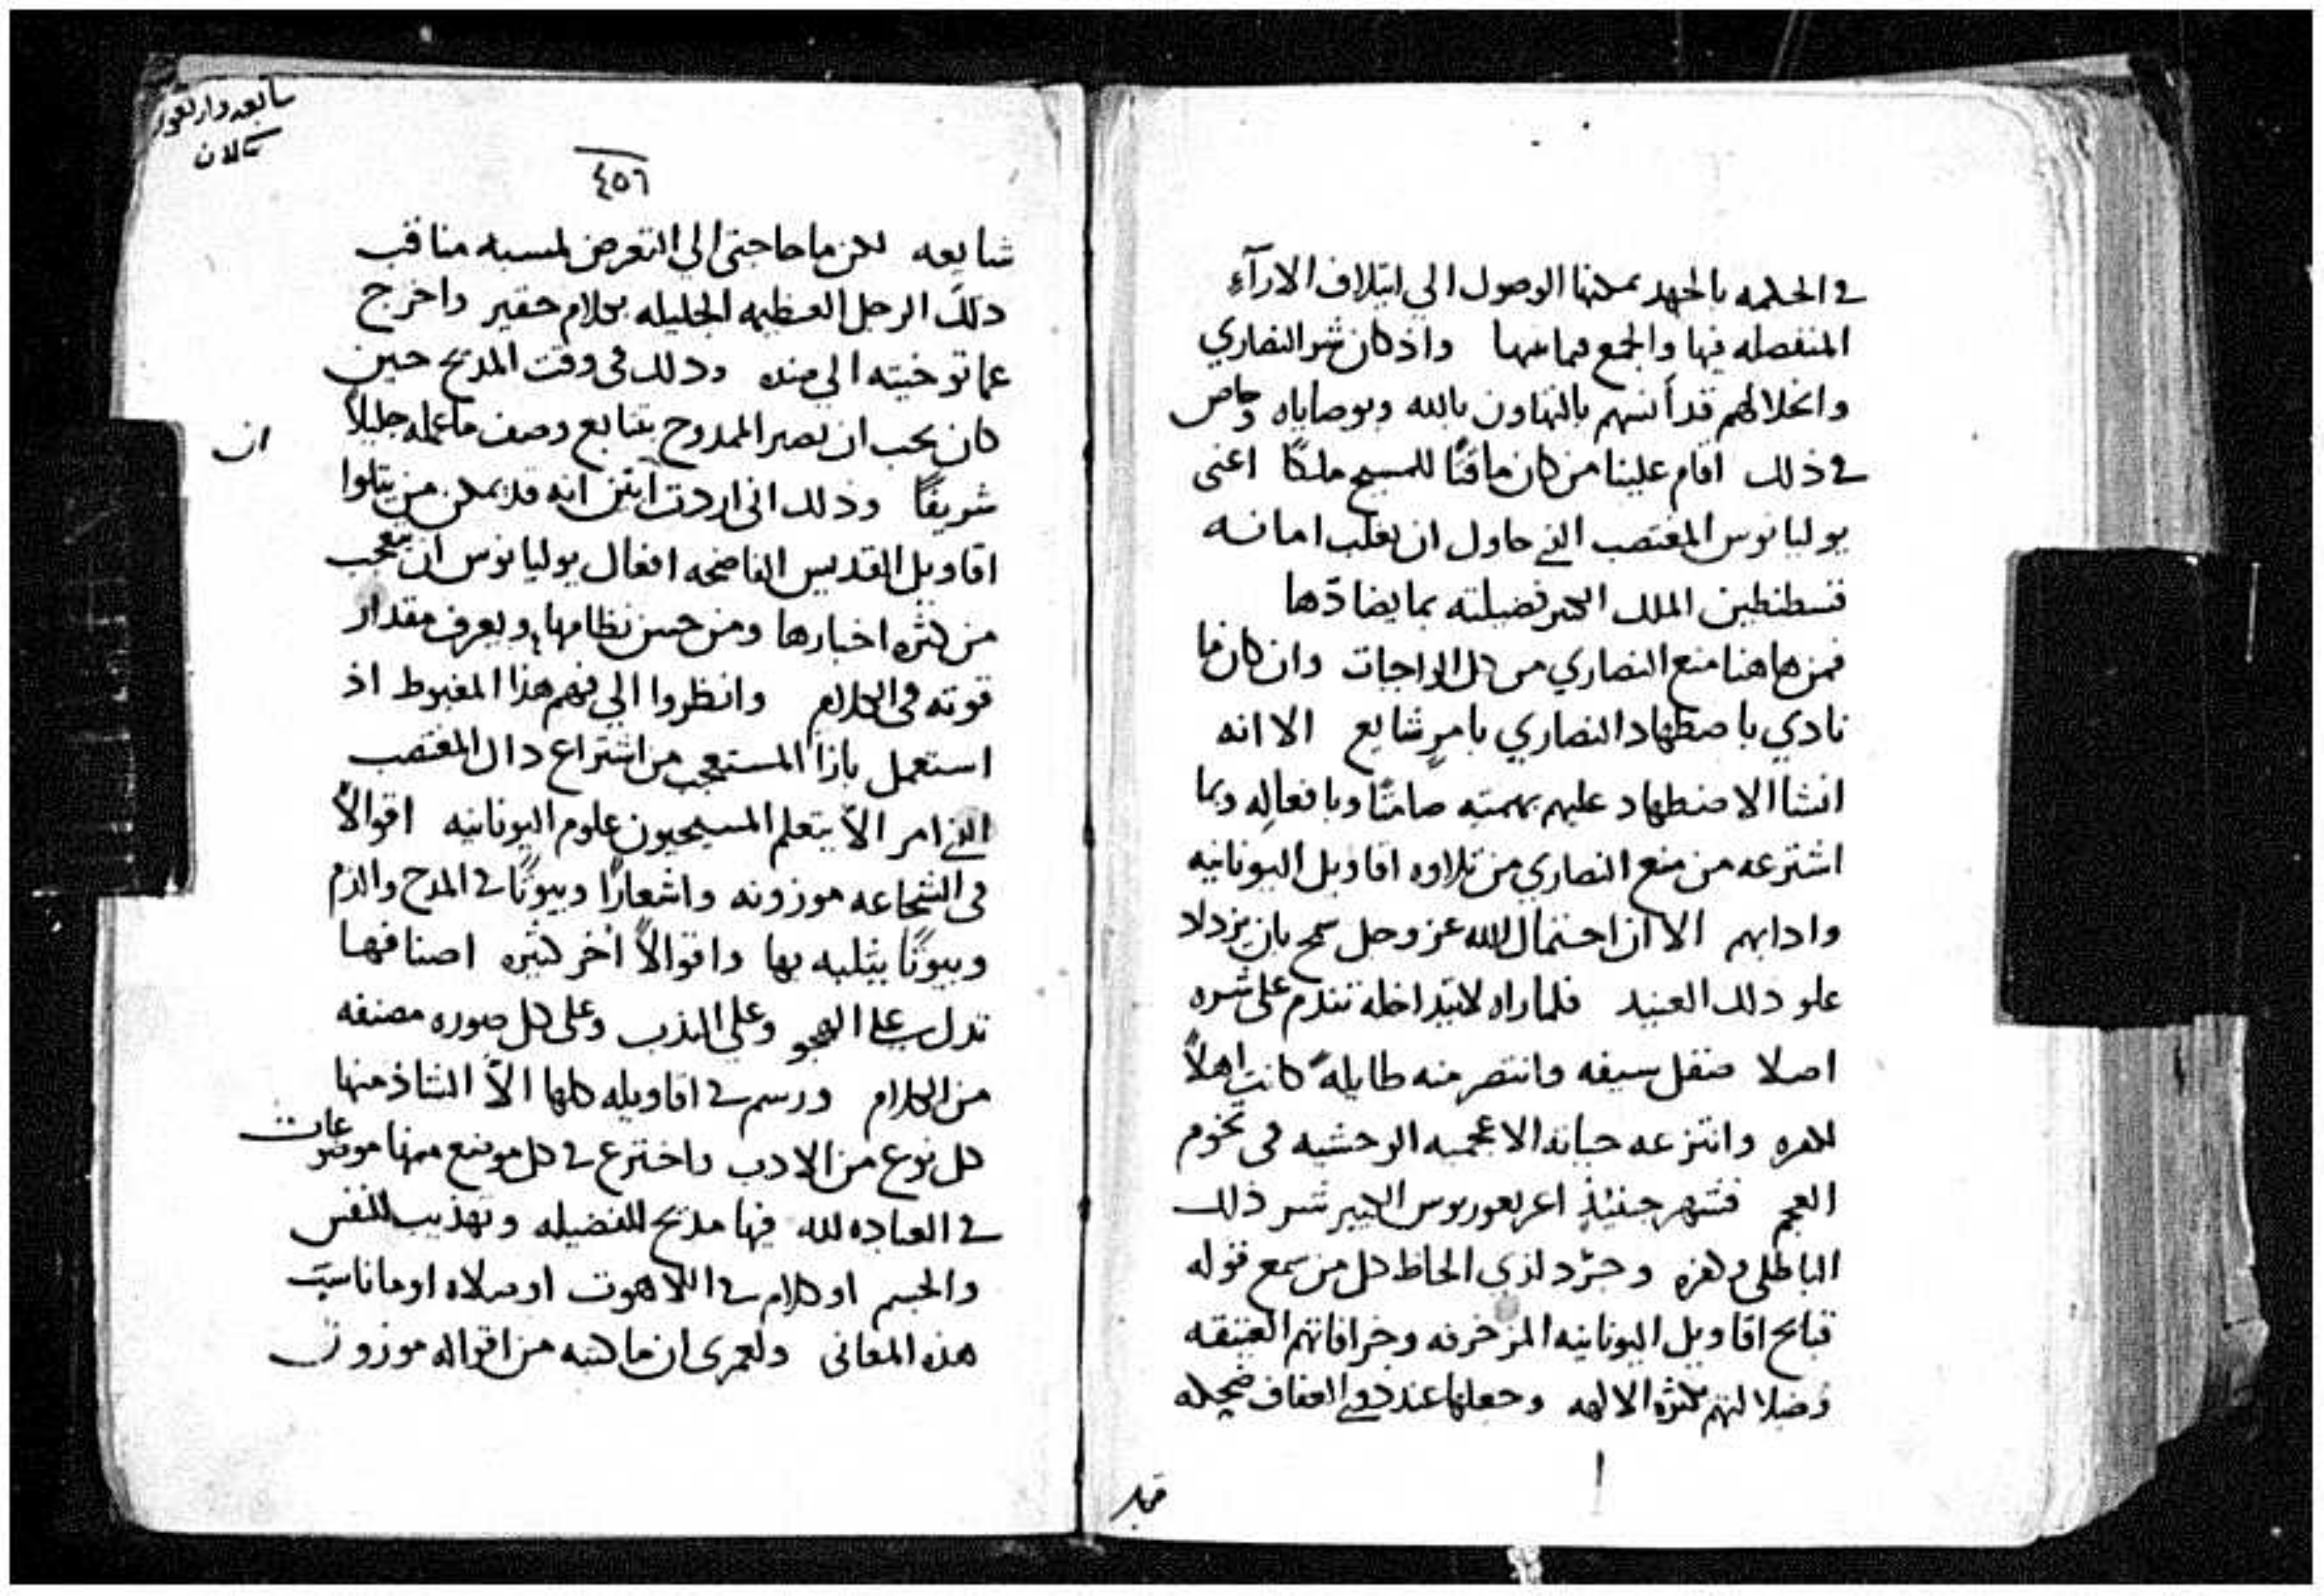 في الحكمه بالجهد يمكنها الوصول الي ايتلاف الارآء
المنفصله فيها والجمع فيما بينها واذ كان شر النصاري
وانحلالهم قد أنسهم بالتهاون بالله وبوصاياه وخاص
في ذلك اقام علينا من كان ماقتًا للمسيح ملكًا اعني
يوليانوس المغتصب الذي حاول ان يقلب امانه
قسطنطين الملك الكبير فضيلته بما يضادّها
فمن هاهنا منع النصاري من كل الواجبات وان كان ما
نادي باضطهاد النصاري بامرٍ شايع الا انه
انشا الاضطهاد عليهم بهمته صامتًا وبافعاله وبما
اشترعه من منع النصاري من تلاوه اقاويل اليونانيه
وادابهم الا ان احتمال الله عز وجل سمح بان يزداد
علو ذلك العنيد فلما راه لا تتداخله تندم على شره
اصلا صقل سيفه وانتصر منه طايلهً كانت اهلاً
لكفره وانتزعه حياته الاعجميه الوحشيه في تخوم
العجم فشهر حينيذٍ اغريغوريوس الكبير شر ذلك
الباطلي وهزه وجرّد لذي الحاظ كل من سمع قوله
قبايح اقاويل اليونانيه المزخرفه وخرافاتهم العتيقه
وضلالتهم بكثره الالهه وجعلها عند ذوي العفاف ضحكه
سابعه واربعون
كلان
٤٥٦
شايعه لكن ما حاجتي الي التعرض لمسبه مناقب
ذلك الرجل العظيمه الجليله بكلام حقير واخرج
عما توخيته الي ضده وذلك في وقت المديح حين
كان يجب ان يصير الممدوح بتتابع وصف ما عمله جليلاً
شريفًا وذلك اني اردت ابين انه قد يمكن من يتلوا
ان
اقاويل القديس الفاضحه افعال يوليانوس ان يتعجب
من كثره اخبارها ومن حسن نظامها ويعرف مقدار
قوته في الكلام وانظروا الي فهم هذا المغبوط اذ
استعمل بازا المستعجب من اشتراع ذاك المغتصب
الذي امر الاّ يتعلم المسيحيون علوم اليونانيه اقوالاً
في الشجاعه موزونه واشعارًا وبيوتًا في المدح والذم
وبيوتًا يثلبه بها واقوالاً أخر كثيره اصنافها
تدل على الهجو وعلي الندب وعلى كل صوره مصنفه
من الكلام ورسم في اقاويله كلها الاّ الشاذ منها
كل نوع من الادب واخترع في كل موضع منها موضوعات
في العباده لله فيها مديح للفضيله وتهذيب للنفس
والجسم او كلام في اللاهوت او صلاه او ما ناسب
هذه المعاني ولعمري ان ما كتبه من اقواله موزون